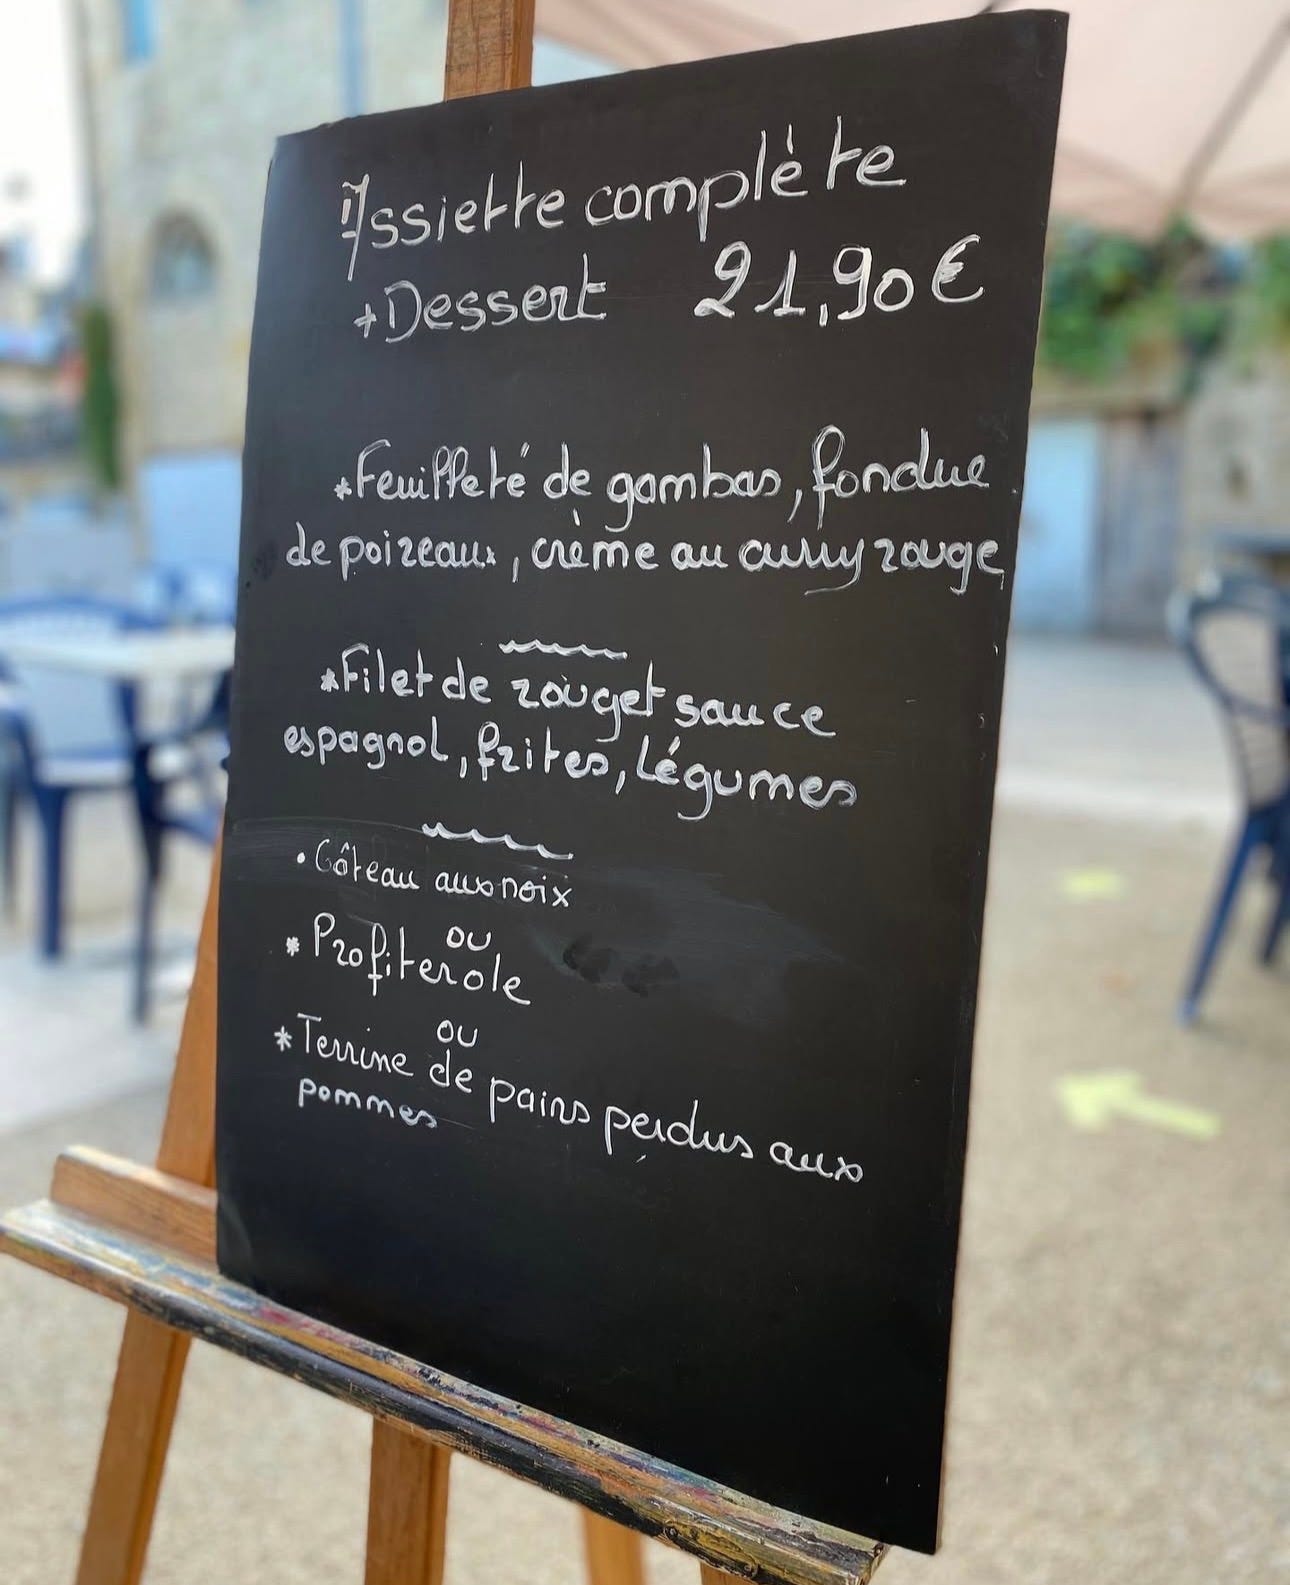 Assiette complète
+Dessert 21,90€
*Feuilleté de gambas, fondue
de poireaux, crème au curry rouge
*Filet de rouget sauce
espagnol, frites, légumes
• Gâteau aux noix
ou
* Profiterole
ou
*Terrine de pains perdus aux
pommes